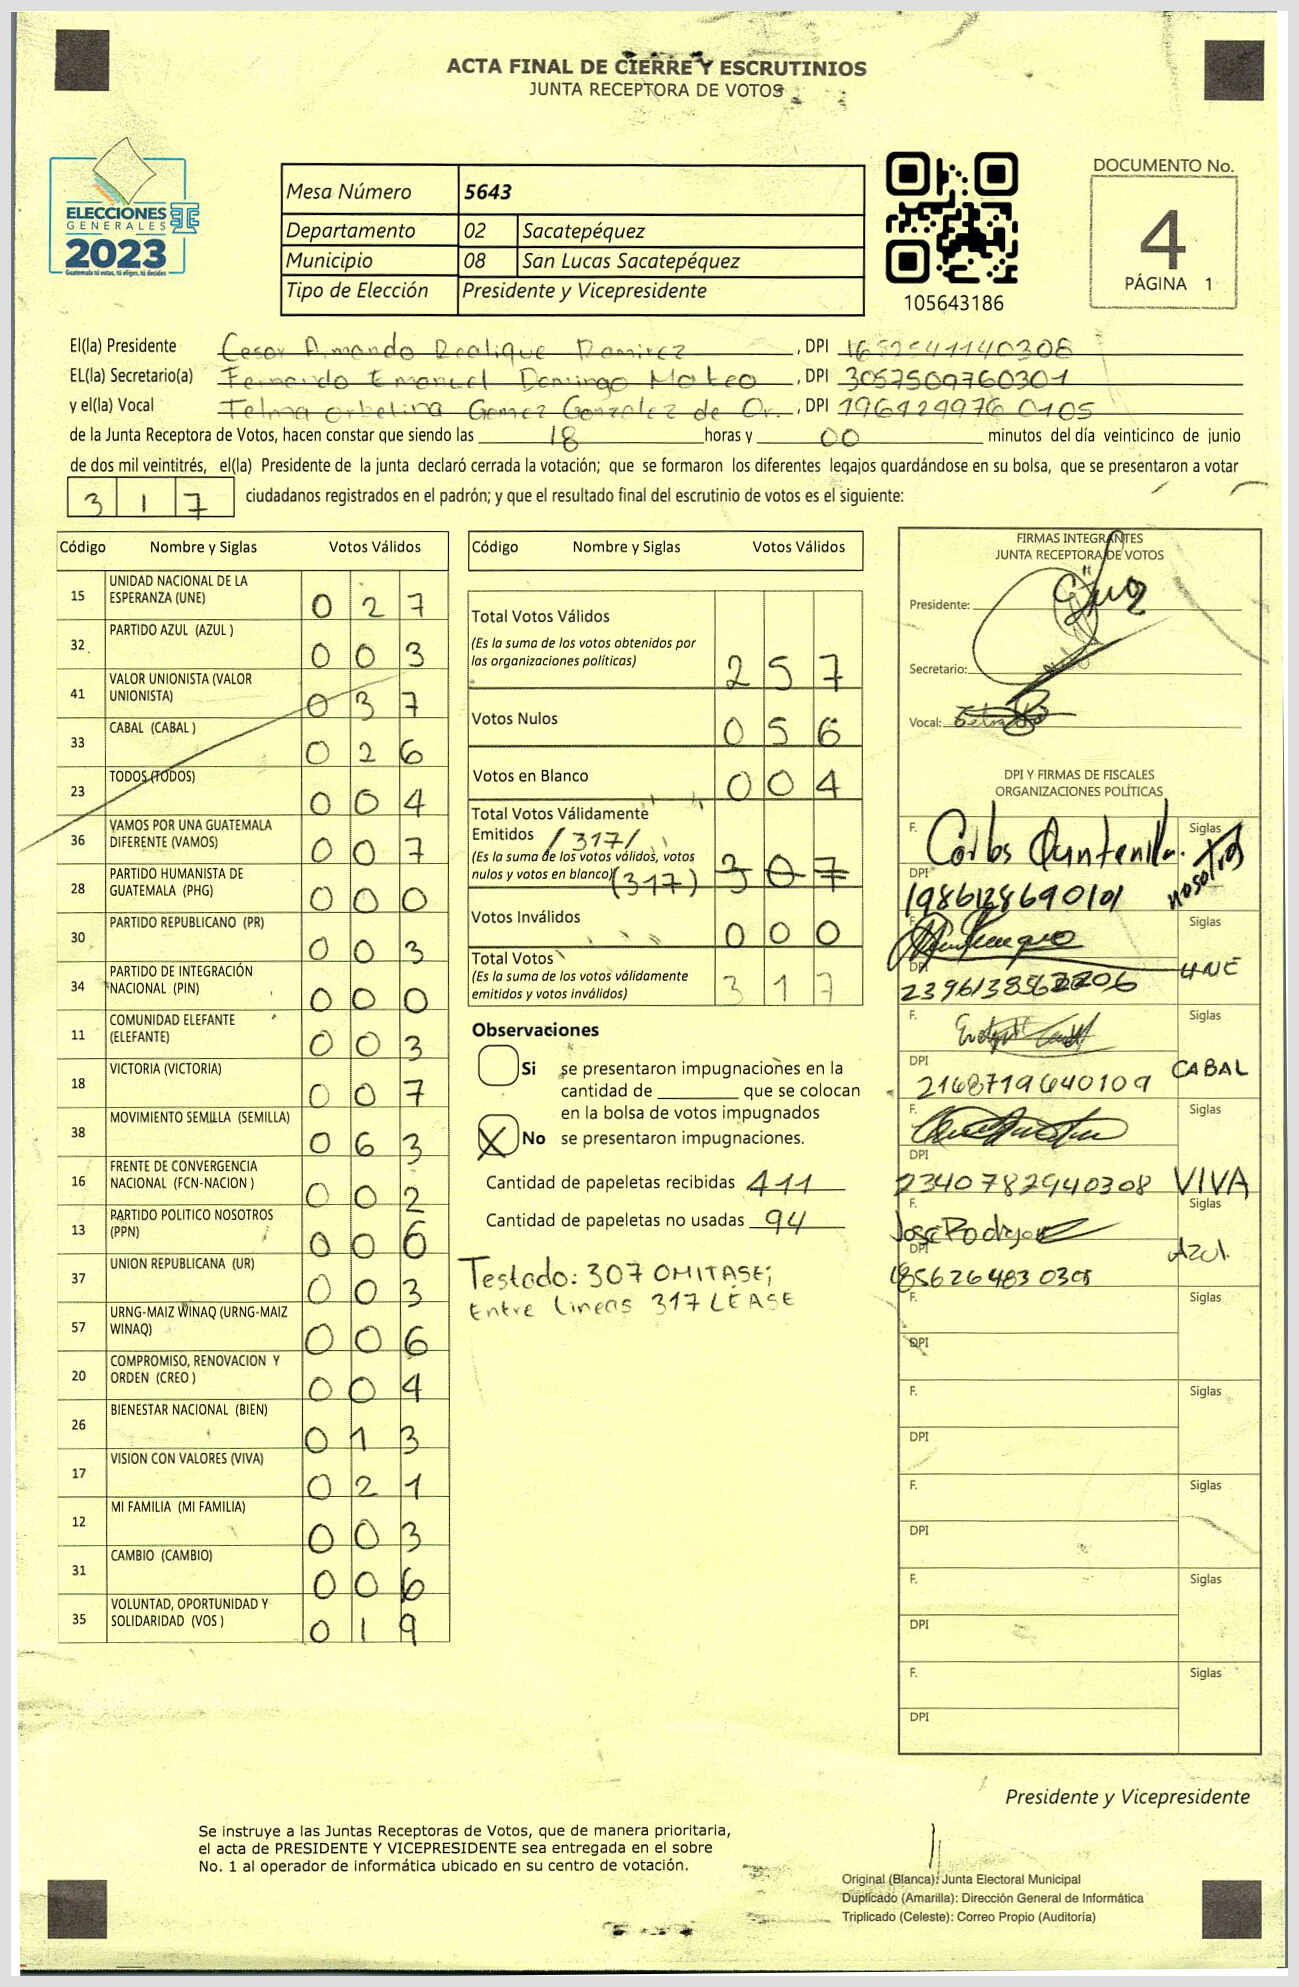 ACTA FINAL DE CIERRE Y ESCRUTINIOS
JUNTA RECEPTORA DE VOTOS
ELECCIONES
GENERALES
2023
Guatemala tú votas, tú eliges, tú decides
Mesa Número 5643
Departamento 02 Sacatepéquez
Municipio 08 San Lucas Sacatepéquez
Tipo de Elección Presidente y Vicepresidente
105643186
DOCUMENTO No.
4
PÁGINA 1
El(la) Presidente Cesar Armando Ramirez , DPI 1652541140308
EL(la) Secretario(a) Fernando Emanuel Domingo Mateo , DPI 3057509760301
y el(la) Vocal Telma Orbelina Gomez Gonzalez de Or. , DPI 196129976 0105
de la Junta Receptora de Votos, hacen constar que siendo las 18 horas y 00 minutos del día veinticinco de junio
de dos mil veintitrés, el(la) Presidente de la junta declaró cerrada la votación; que se formaron los diferentes legajos guardándose en su bolsa, que se presentaron a votar
3 1 7 ciudadanos registrados en el padrón; y que el resultado final del escrutinio de votos es el siguiente:
Código Nombre y Siglas Votos Válidos
15 UNIDAD NACIONAL DE LA
ESPERANZA (UNE) 0 2 7
32 PARTIDO AZUL (AZUL ) 0 0 3
41 VALOR UNIONISTA (VALOR
UNIONISTA) 0 3 7
33 CABAL (CABAL ) 0 2 6
23 TODOS (TODOS) 0 0 4
36 VAMOS POR UNA GUATEMALA
DIFERENTE (VAMOS) 0 0 7
28 PARTIDO HUMANISTA DE
GUATEMALA (PHG) 0 0 0
30 PARTIDO REPUBLICANO (PR) 0 0 3
34 PARTIDO DE INTEGRACIÓN
NACIONAL (PIN) 0 0 0
11 COMUNIDAD ELEFANTE
(ELEFANTE) 0 0 3
18 VICTORIA (VICTORIA) 0 0 7
38 MOVIMIENTO SEMILLA (SEMILLA) 0 6 3
16 FRENTE DE CONVERGENCIA
NACIONAL (FCN-NACION ) 0 0 2
13 PARTIDO POLITICO NOSOTROS
(PPN) 0 0 6
37 UNION REPUBLICANA (UR) 0 0 3
57 URNG-MAIZ WINAQ (URNG-MAIZ
WINAQ) 0 0 6
20 COMPROMISO, RENOVACION Y
ORDEN (CREO ) 0 0 4
26 BIENESTAR NACIONAL (BIEN) 0 1 3
17 VISION CON VALORES (VIVA) 0 2 1
12 MI FAMILIA (MI FAMILIA) 0 0 3
31 CAMBIO (CAMBIO) 0 0 6
35 VOLUNTAD, OPORTUNIDAD Y
SOLIDARIDAD (VOS ) 0 1 9
Código Nombre y Siglas Votos Válidos
Total Votos Válidos
(Es la suma de los votos obtenidos por
las organizaciones políticas) 2 5 7
Votos Nulos 0 5 6
Votos en Blanco 0 0 4
Total Votos Válidamente
Emitidos /317/
(Es la suma de los votos válidos, votos
nulos y votos en blanco) (317) 3 0 7
Votos Inválidos 0 0 0
Total Votos
(Es la suma de los votos válidamente
emitidos y votos inválidos) 3 1 7
Observaciones
Si se presentaron impugnaciones en la
cantidad de ________ que se colocan
en la bolsa de votos impugnados
X No se presentaron impugnaciones.
Cantidad de papeletas recibidas 411
Cantidad de papeletas no usadas 94
Testado: 307 OMITASE;
Entre lineas 317 LÉASE
FIRMAS INTEGRANTES
JUNTA RECEPTORA DE VOTOS
Presidente:
Secretario:
Vocal:
DPI Y FIRMAS DE FISCALES
ORGANIZACIONES POLÍTICAS
F. Carlos Quintanilla. Siglas nosotros
DPI 1986128690101
F. Siglas UNE
DPI 2396138562206
F. Siglas CABAL
DPI 2168719640109
F. Siglas VIVA
DPI 2340782940308
F. Jose Rodrigo Siglas Azul.
DPI 1856264830301
F. Siglas
DPI
F. Siglas
DPI
F. Siglas
DPI
F. Siglas
DPI
F. Siglas
DPI
Presidente y Vicepresidente
Se instruye a las Juntas Receptoras de Votos, que de manera prioritaria,
el acta de PRESIDENTE Y VICEPRESIDENTE sea entregada en el sobre
No. 1 al operador de informática ubicado en su centro de votación.
Original (Blanca): Junta Electoral Municipal
Duplicado (Amarilla): Dirección General de Informática
Triplicado (Celeste): Correo Propio (Auditoría)